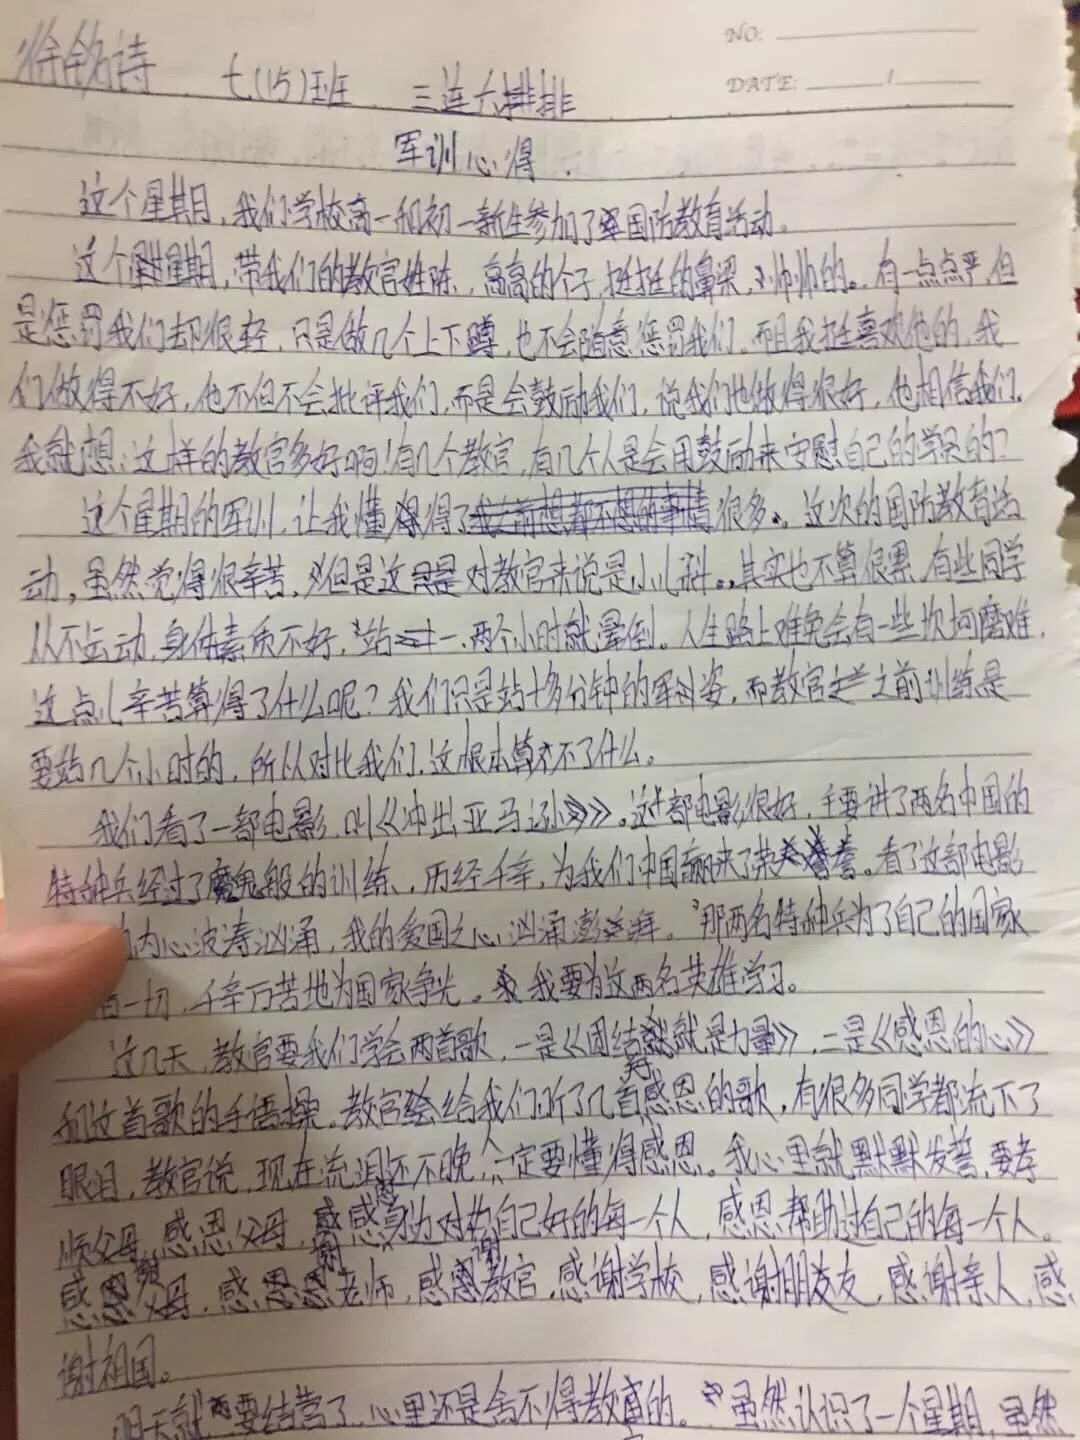 徐铭诗 七(15)班 三连六排
NO:
DATE: /
军训心得
这个星期,我们学校高一和初一新生参加了国防教育活动。
这个星期,带我们的教官姓陈,高高的个子,挺挺的鼻梁,小帅帅的。有一点点严,但
是惩罚我们却很轻,只是做几个上下蹲,也不会随意惩罚我们。而且我挺喜欢他的,我
们做得不好,他不但不会批评我们,而是会鼓励我们,说我们也做得很好,他相信我们。
我就想:这样的教官多好啊!有几个教官,有几个人是会用鼓励来安慰自己的学员的?
这个星期的军训,让我懂得了很多。这次的国防教育活
动,虽然觉得很辛苦,但是这对教官来说是小儿科。其实也不算很累,有些同学
从不运动,身体素质不好,站一、两个小时就晕倒。人生路上难免会有一些坎坷磨难,
这点儿辛苦算得了什么呢?我们只是站十多分钟的军姿,而教官之前训练是
要站几个小时的,所以对比我们,这根本算不了什么。
我们看了一部电影,叫《冲出亚马逊》。这部电影很好,主要讲了两名中国的
特种兵经过了魔鬼般的训练,历经千辛,为我们中国赢来了荣誉。看了这部电影
内心波涛汹涌,我的爱国之心汹涌澎湃。那两名特种兵为了自己的国家
一切,千辛万苦地为国家争光。我要为这两名英雄学习。
这几天,教官要我们学会两首歌,一是《团结就是力量》,二是《感恩的心》
和这首歌的手语操。教官给我们听了几首感恩的歌,有很多同学都流下了
眼泪,教官说,现在流泪还不晚,人一定要懂得感恩。我心里就默默发誓,要孝
顺父母,感恩父母,感恩身边对自己好的每一个人,感恩帮助过自己的每一个人。
感谢父母,感谢老师,感谢教官,感谢学校,感谢朋友,感谢亲人,感
谢祖国。
明天就要结营了,心里还是舍不得教官的。虽然认识了一个星期,虽然